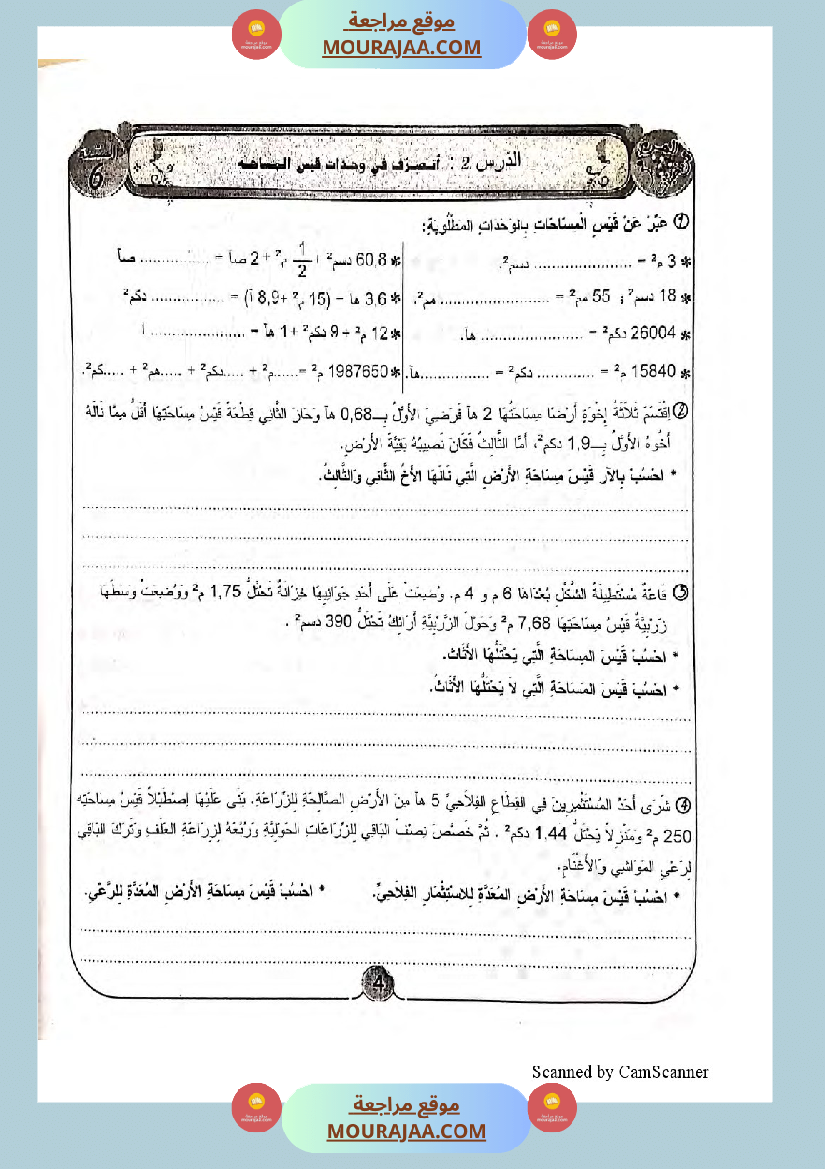 موقع مراجعة
MOURAJAA.COM
السنة 6
الدرس 2 : أتصرّف في وحدات قيس المساحة
1 عَبِّرْ عَنْ قَيْسِ الْمِسَاحَاتِ بِالوَحَدَاتِ المَطْلُوبَةِ:
* 3 م² = ...................... دسم².
* 60,8 دسم² + 1/2 م² + 2 صآ = ............... صآ
* 18 دسم² و 55 مم² = ........................ مم².
* 3,6 هآ – (15 م² + 8,9 آ) = ................ دكم²
* 26004 دكم² = ....................... هآ.
* 12 م² + 9 دكم² + 1 هآ = ..................... آ
* 15840 م² = ............. دكم² = ................هآ.
* 1987650 م² =......م² + .....دكم² + .....هم² + .....كم².
2 اِقْتَسَمَ ثَلَاثَةُ إِخْوَةٍ أَرْضًا مِسَاحَتُهَا 2 هآ فَرَضِيَ الأَوَّلُ بِـ0,68 هآ وَحَازَ الثَّانِي قِطْعَةً قَيْسُ مِسَاحَتِهَا أَقَلُّ مِمَّا نَالَهُ
أَخُوهُ الأَوَّلُ بِـ1,9 دكم²، أَمَّا الثَّالِثُ فَكَانَ نَصِيبُهُ بَقِيَّةَ الأَرْضِ.
* احْسُبْ بِالآرِ قَيْسَ مِسَاحَةِ الأَرْضِ الَّتِي نَالَهَا الأَخُ الثَّانِي وَالثَّالِثُ.
3 قَاعَةٌ مُسْتَطِيلَةُ الشَّكْلِ بُعْدَاهَا 6 م و 4 م. وُضِعَتْ عَلَى أَحَدِ جَوَانِبِهَا خِزَانَةٌ تَحْتَلُّ 1,75 م² وَوُضِعَتْ وَسَطَهَا
زَرْبِيَّةٌ قَيْسُ مِسَاحَتِهَا 7,68 م² وَحَوْلَ الزَّرْبِيَّةِ أَرَائِكُ تَحْتَلُّ 390 دسم² .
* احْسُبْ قَيْسَ المِسَاحَةِ الَّتِي يَحْتَلُّهَا الأَثَاثُ.
* احْسُبْ قَيْسَ المَسَاحَةِ الَّتِي لاَ يَحْتَلُّهَا الأَثَاثُ.
4 شَرَى أَحَدُ المُسْتَثْمِرِينَ فِي القِطَاعِ الفِلَاحِيِّ 5 هآ مِنَ الأَرْضِ الصَّالِحَةِ لِلزِّرَاعَةِ. بَنَى عَلَيْهَا إِصْطَبْلاً قَيْسُ مِسَاحَتِهِ
250 م² وَمَنْزِلاً يَحْتَلُّ 1,44 دكم² . ثُمَّ خَصَّصَ نِصْفَ البَاقِي لِلزِّرَاعَاتِ الحَوْلِيَّةِ وَرُبُعَهُ لِزِرَاعَةِ العَلَفِ وَتَرَكَ البَاقِي
لِرَعْيِ المَوَاشِي وَالأَغْنَامِ.
* احْسُبْ قَيْسَ مِسَاحَةِ الأَرْضِ المُعَدَّةِ لِلاسْتِثْمَارِ الفِلَاحِيِّ. * احْسُبْ قَيْسَ مِسَاحَةِ الأَرْضِ المُعَدَّةِ لِلرَّعْيِ.
4
Scanned by CamScanner
موقع مراجعة
MOURAJAA.COM